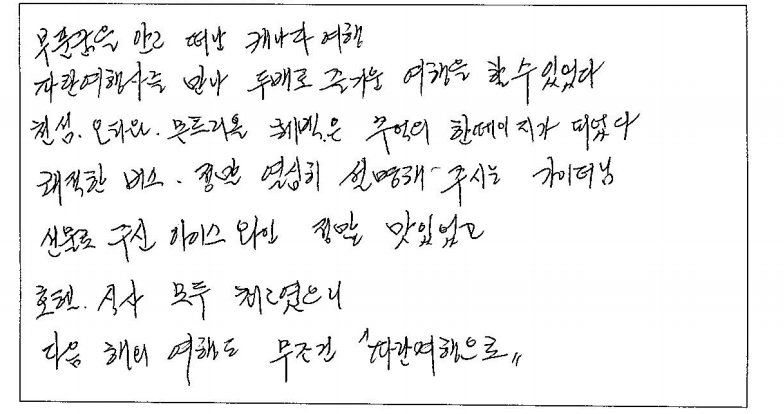 부푼꿈을 안고 떠난 캐나다여행
파란여행사를 만나 두배로 즐거운 여행을 할수있었다
천섬. 오타와. 몬트리올 퀘벡은 추억의 한페이지가 되었다
쾌적한 버스. 정말 열심히 설명해 주시는 가이더님
선물로 주신 아이스 와인 정말 맛있었고
호텔. 식사 모두 최고였으니
다음 해의 여행도 무조건 "파란여행으로"